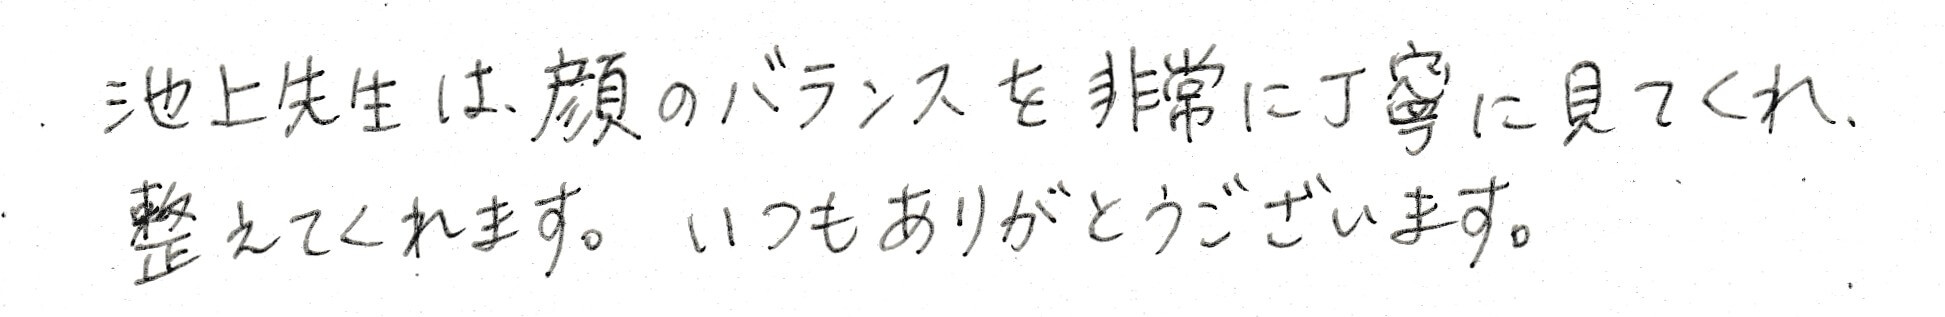 池上先生は、顔のバランスを非常に丁寧に見てくれ、
整えてくれます。いつもありがとうございます。